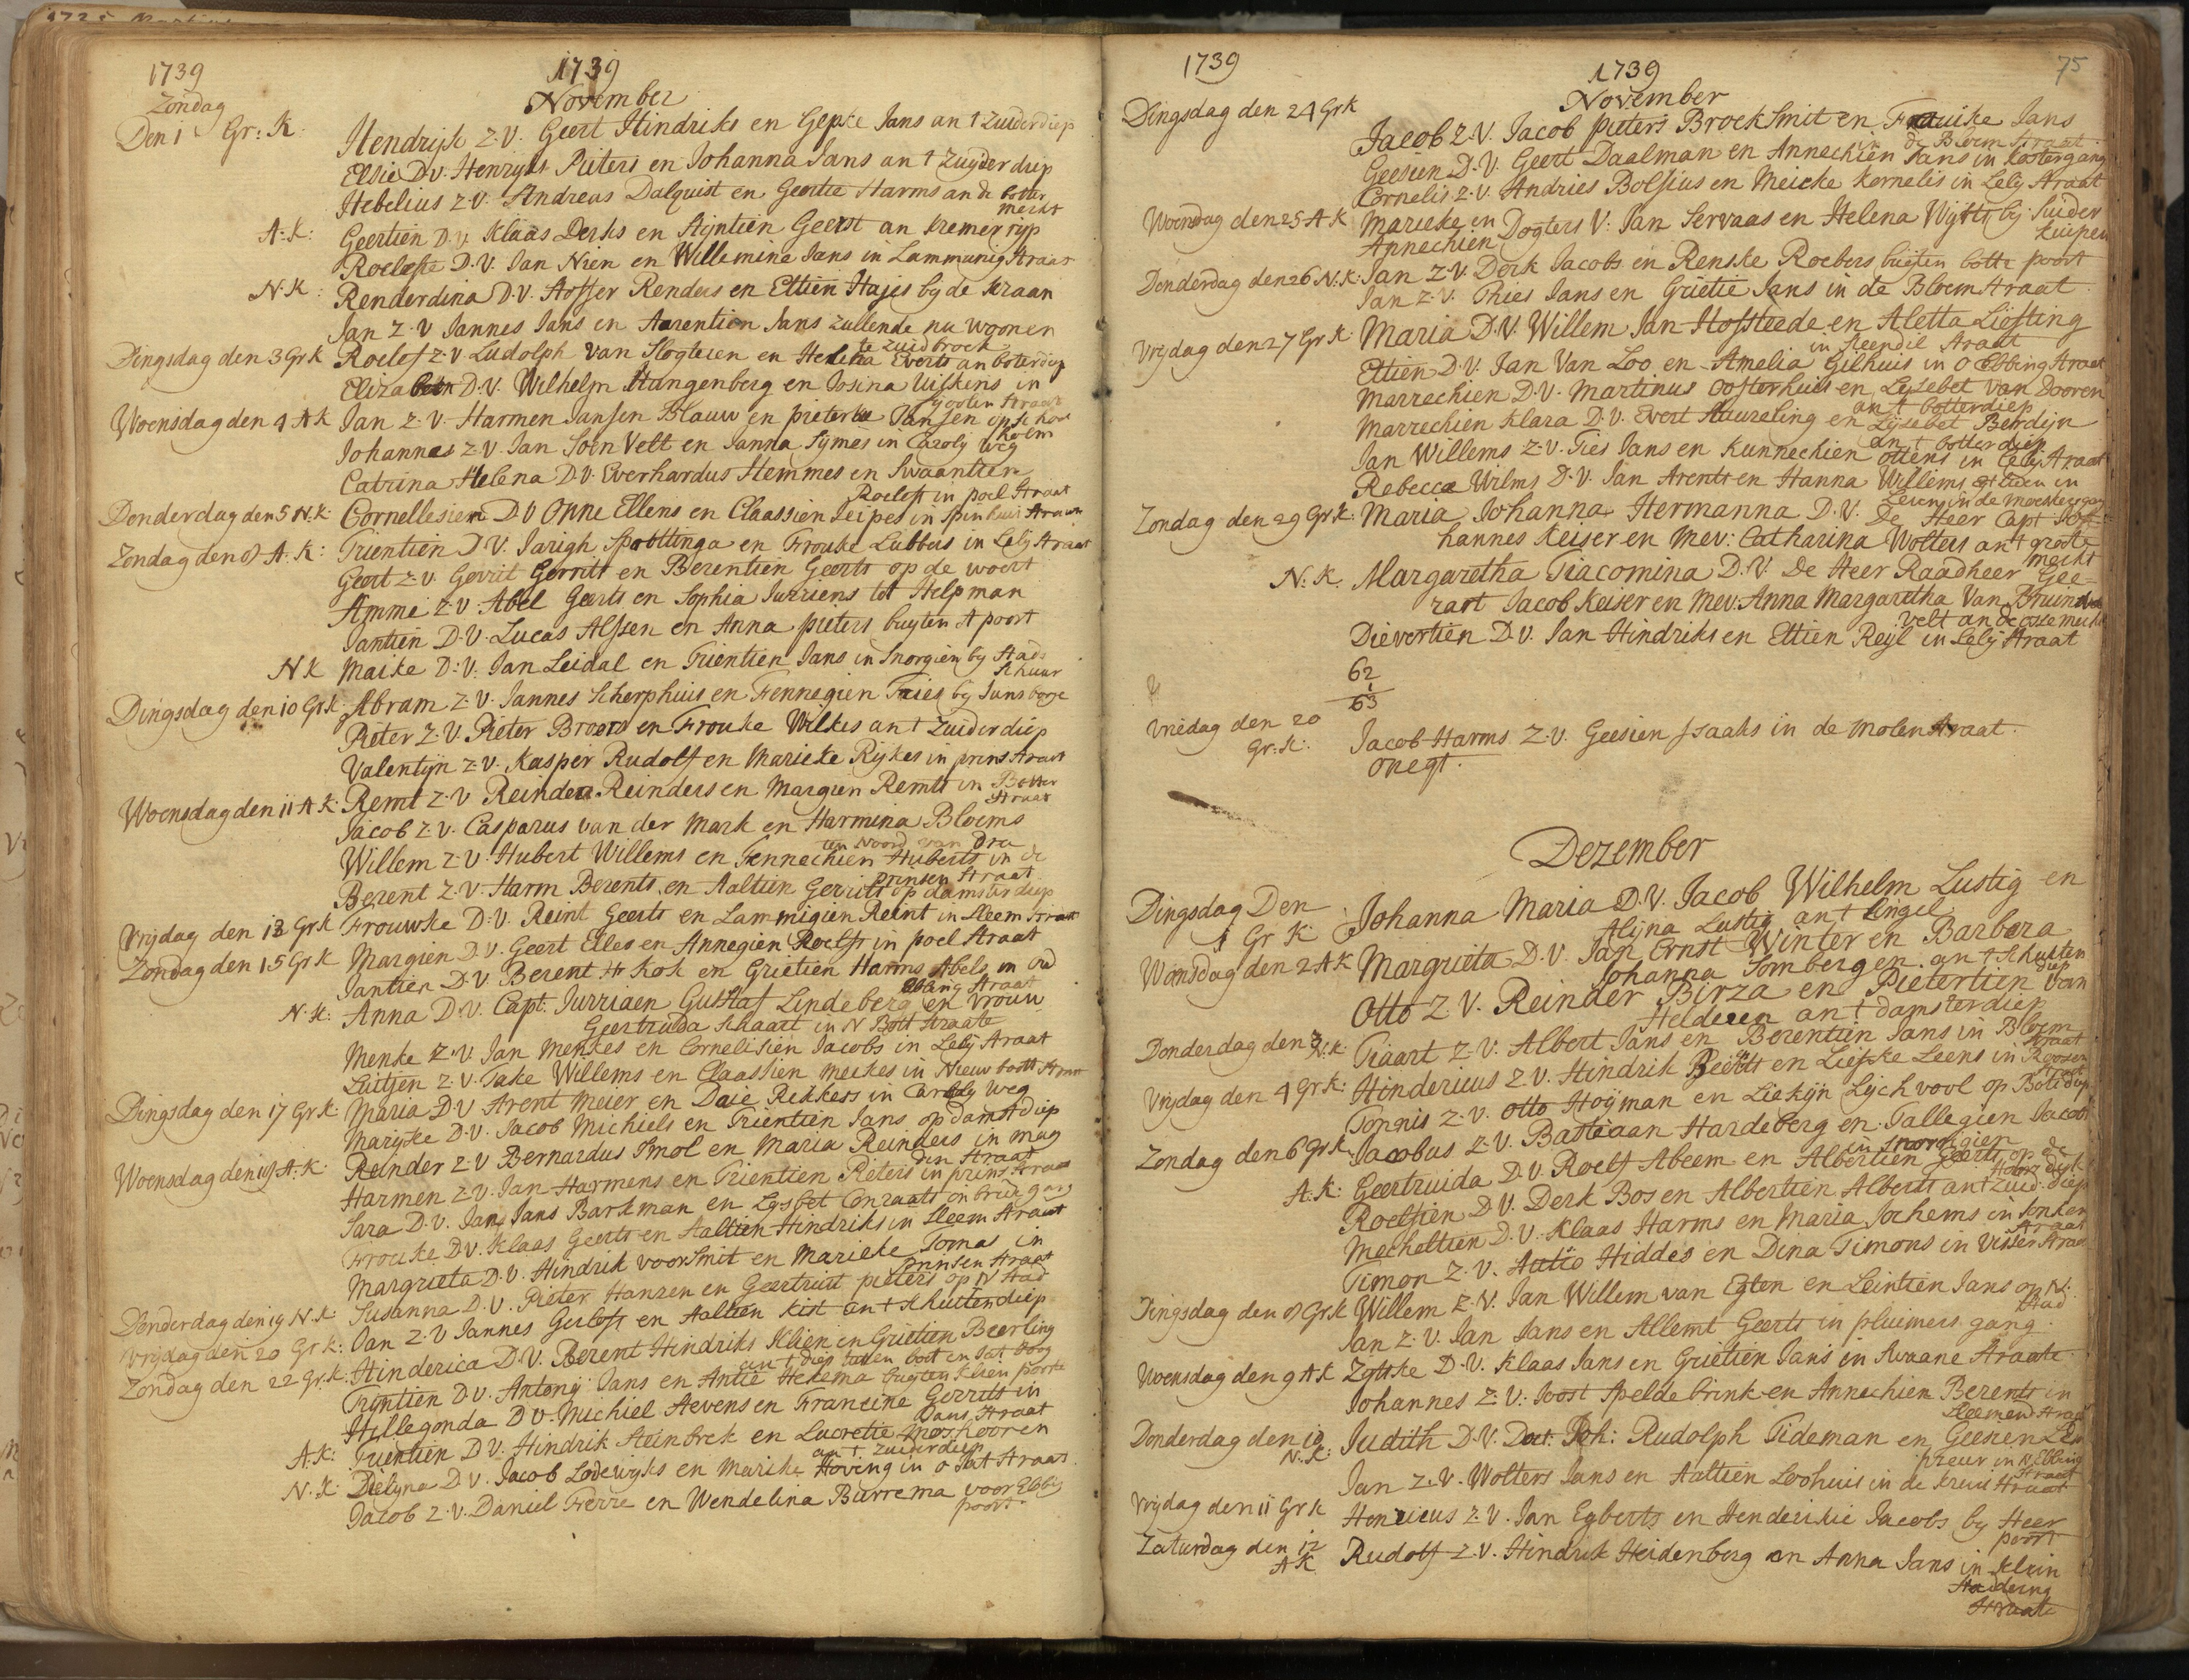 1739
1739
November
Zondag
Den 1 Gr: K. Hendrijk Z.V. Geert Hindriks en Gepke Jans an t Zuiderdiep
Elsie D.V. Henryks Pieters en Johanna Jans an t Zuyder diep
Hebelius Z.V. Andreas Dalquist en Geertie Harms an de botter
merkt
A:K: Geertien D.V. Klaas Derks en Stijntien Geerst an kremer ryp
Roelefke D.V. Jan Nien en Willemina Jans in Lammunig straat
N.K: Renderdina D.V. Hosser Renders en Ettien Hajes by de kraan
Jan Z.V Jannes Jans en Aarentien Jans zullende nu woonen
te Zuidbroek
Dingsdag den 3 Gr K Roelef Z.V Ludolph van Slogteren en Helena Everts an boterdiep
Elizabeth D.V. Wilhelm Stangenberg en Josina Uilkens in
Woensdag den 4 A K Jan Z.V. Harmen Jansen Blauw en pieterke Jansen op schoe
holm
Johannes Z.V. Jan Soen Velt en Janna Symes in Caroly weg
Catrina Helena D.V. Everhardus Hemmes en Swaantien
Roelefs in poel straat
Donderdag den 5 N.K: Cornellesien D.V Onne Ellens en Claassien Seipes in Spinhuis straat
Zondag den 8 A.K: Trientien D.V. Jarigh Spottinga en Frouke Lubbers in Lelij straat
Geert Z.V. Gerrit Gerrits en Berentien Geerts op de woert
Amme Z.V Abel Geerts en Sophia Jurriens tot Helpman
Jantien D.V. Lucas Alssen en Anna pieters buyten A poort
N K Maike D:V. Jan Leidal en Trientien Jans in Snorgien by Stads
Schuur
Dingsdag den 10 Gr K: Abram Z.V. Jannes Scherphuis en Fennegien Faies by Juns borge
Pieter Z.V. Pieter Broers en Frouke Wilkes an t Zuiderdiep
Valentijn Z.V. Kasper Rudolf en Marieke Rijkes in prins straat
Woensdag den 11 A K: Remt Z.V Reinder Reinders en Margien Remts in Botter
straat
Jacob Z.V. Casparus van der Mark en Harmina Bloems
ten Noord van Dra
Willem Z.V. Hubert Willems en Fennechien Huberts in de
prinsen straat
Berent Z.V. Harm Berents en Aaltien Gerrits op damster diep
Vrijdag den 13 Gr K Frouwke D.V. Reint Geerts en Lammigien Reint in Steem straat
Zondag den 15 Gr K Margien D.V. Geert Elles en Annegien Roelfs in poel straat
Jantien D.V. Berent Hr Kok en Grietien Harms Abels in oud
Ebbing straat
N.K: Anna D.V. Capt. Jurriaen Gustaf Lindeberg en vrouw
Geertruida Schaart in N Bott straate
Menke Z.V. Jan Menkes en Cornelisien Jacobs in Lelij straat
Luitjen Z.V. Take Willems en Claassien Meckes in Nieuw bott straat
Dingsdag den 17 Gr K: Maria D.V Arent Meier en Daie Rekkers in Caroly weg
Marijke D.V. Jacob Michiels en Trientien Jans op damst diep
Woensdag den 18 A.K: Reinder Z.V Bernardus Smol en Maria Reinders in mug
den straat
Harmen Z.V. Jan Harmens en Trientien Pieters in prins straat
Sara D.V. Jan Jans Barkman en Lysbet Conraats in brug gang
Frouke D.V. Klaas Geerts en Aaltien Hindriks in Steem straat
Margrieta D.V. Hindrik voor Smit en Marieke Tomas in
prinsen straat
Donderdag den 19 N.K: Susanna D.V. Pieter Hansen en Geertruit pieters op N Stad
Vrijdag den 20 Gr K: Jan Z.V Jannes Gerlofs en Aaltien Kist an t Schuitendiep
Zondag den 22 Gr.K: Hinderica D.V. Berent Hindriks Klien en Grietien Beerling
an t diep tusen bott en Jat boog
Trijntien D.V. Antonij Jans en Antie Hekema buyten klein poorte
Hillegonda D.V. Michiel Stevens en Francine Gerrits in
Dans straat
A.K: Trientien D.V. Hindrik Steinbrek en Lucretie Moskooren
an t Zuiderdiep
N.K: Dielijna D.V. Jacob Lodewijks en Marike Hoving in O Jat straat
Jacob Z.V. Daniel Frerre en Wendelina Burrema voor Ebbing
poort
1739
1739
75
November
Dingsdag den 24 Gr K
Jacob Z.V. Jacob pieters Broek Smit en Frauike Jans
in de Bloem straat
Geesien D.V. Geert Daalman en Annechien Jans in kostergang
Cornelis Z.V. Andries Bolsius en Meicke Kornelis in Lelij straat
Woensdag den 25 A K Marieke en
Annechien Dogters V: Jan Servaas en Helena Wijtts bij Suider
kuipen
Donderdag den 26 N.K: Jan Z.V. Derk Jacobs en Renske Roebers buiten botte poort
Jan Z.V. Thies Jans en Grietie Jans in de Bloem straat
Vrijdag den 27 Gr K: Maria D.V. Willem Jan Hofsteede en Aletta Liefting
in Steendil straat
Ettien D.V. Jan Van Loo en Amelia Gilhuis in O Ebbing straat
Marrechien D.V. Martinus Oosterhuis en Lysebet van Dooren
an t botterdiep
Marrechien Klara D.V. Evert Stuureling en Lijsebet Berdijn
an t botterdiep
Jan Willems Z.V. Ties Jans en Kunnechien Ottens in Lelij straat
Rebecca Wilms D.V. Jan Arents en Hanna Willems in
Zondag den 29 Gr K: Maria Johanna Hermanna D.V. De Heer Capt Jo-
hannes Keiser en Mev: Catharina Wolters an t groote
merkt
N.K. Margaretha Tiacomina D.V. De Heer Raadheer Gee-
raart Jacob Keiser en Mev. Anna Margaretha Van Bruins
velt an de oste merkt
Dievertien D.V. Jan Hindriks en Ettien Reijl in Lelij straat
62
1
63
Vriedag den 20
Gr.K: Jacob Harms Z.V. Geesien Isaaks in de molen straat.
onegt.
Dezember
Dingsdag Den
1 Gr K Johanna Maria D.V. Jacob Wilhelm Lustig en
Alijna Lustig an t Singel
Woensdag den 2 A K Margrieta D.V. Jan Ernst Winter en Barbara
Johanna Sombergen an t Schuiten
diep
Otto Z.V. Reinder Birza en Pietertien van
Helderen an t damsterdiep
Donderdag den 3 N.K: Tiaart Z.V. Albert Jans en Berentien Jans in Bloem
straat
Vrijdag den 4 Gr K: Hindericus Z.V. Hindrik Beerts en Liepke Leens in Roosen
straat
Tonnis Z.V. Otto Hoijman en Liekijn Lijchvool op Botediep
Zondag den 6 Gr K Jacobus Z.V. Bastiaan Hardeberg en Tallegien Jacobs
in Snorrigien
A.K: Geertruida D.V. Roelf Abeem en Albertien Geerts op de
Roelfien D.V. Derk Bos en Albertien Alberts an t Zuid. diep
Mecheltien D.V. Klaas Harms en Maria Jochems in Jonker
straat
Timon Z.V. Autio Hiddes en Dina Timons in Visser straat
Dingsdag den 8 Gr K Willem Z.V. Jan Willem van Egten en Leintien Jans op N.
Stad
Jan Z.V. Jan Jans en Allemt Geerts in pluimers gang.
Woensdag den 9 A K Zytske D.V. Klaas Jans en Grietien Jans in Swaane straate
Johannes Z.V. Joost Speldebrink en Annechien Berents in
Donderdag den 10
N.K: Judith D.V. Doct. Joh: Rudolph Tideman en Geesien Lem
preur in N Ebbing
straat
Jan Z.V. Wolters Jans en Aaltien Loohuis in de kruis straat
Vrijdag den 11 Gr K Henricus Z.V. Jan Egberts en Henderikie Jacobs by Heer
poort
Zaturdag den 12
A K Rudolf Z.V. Hindrik Heidenberg en Anna Jans in klein
straate